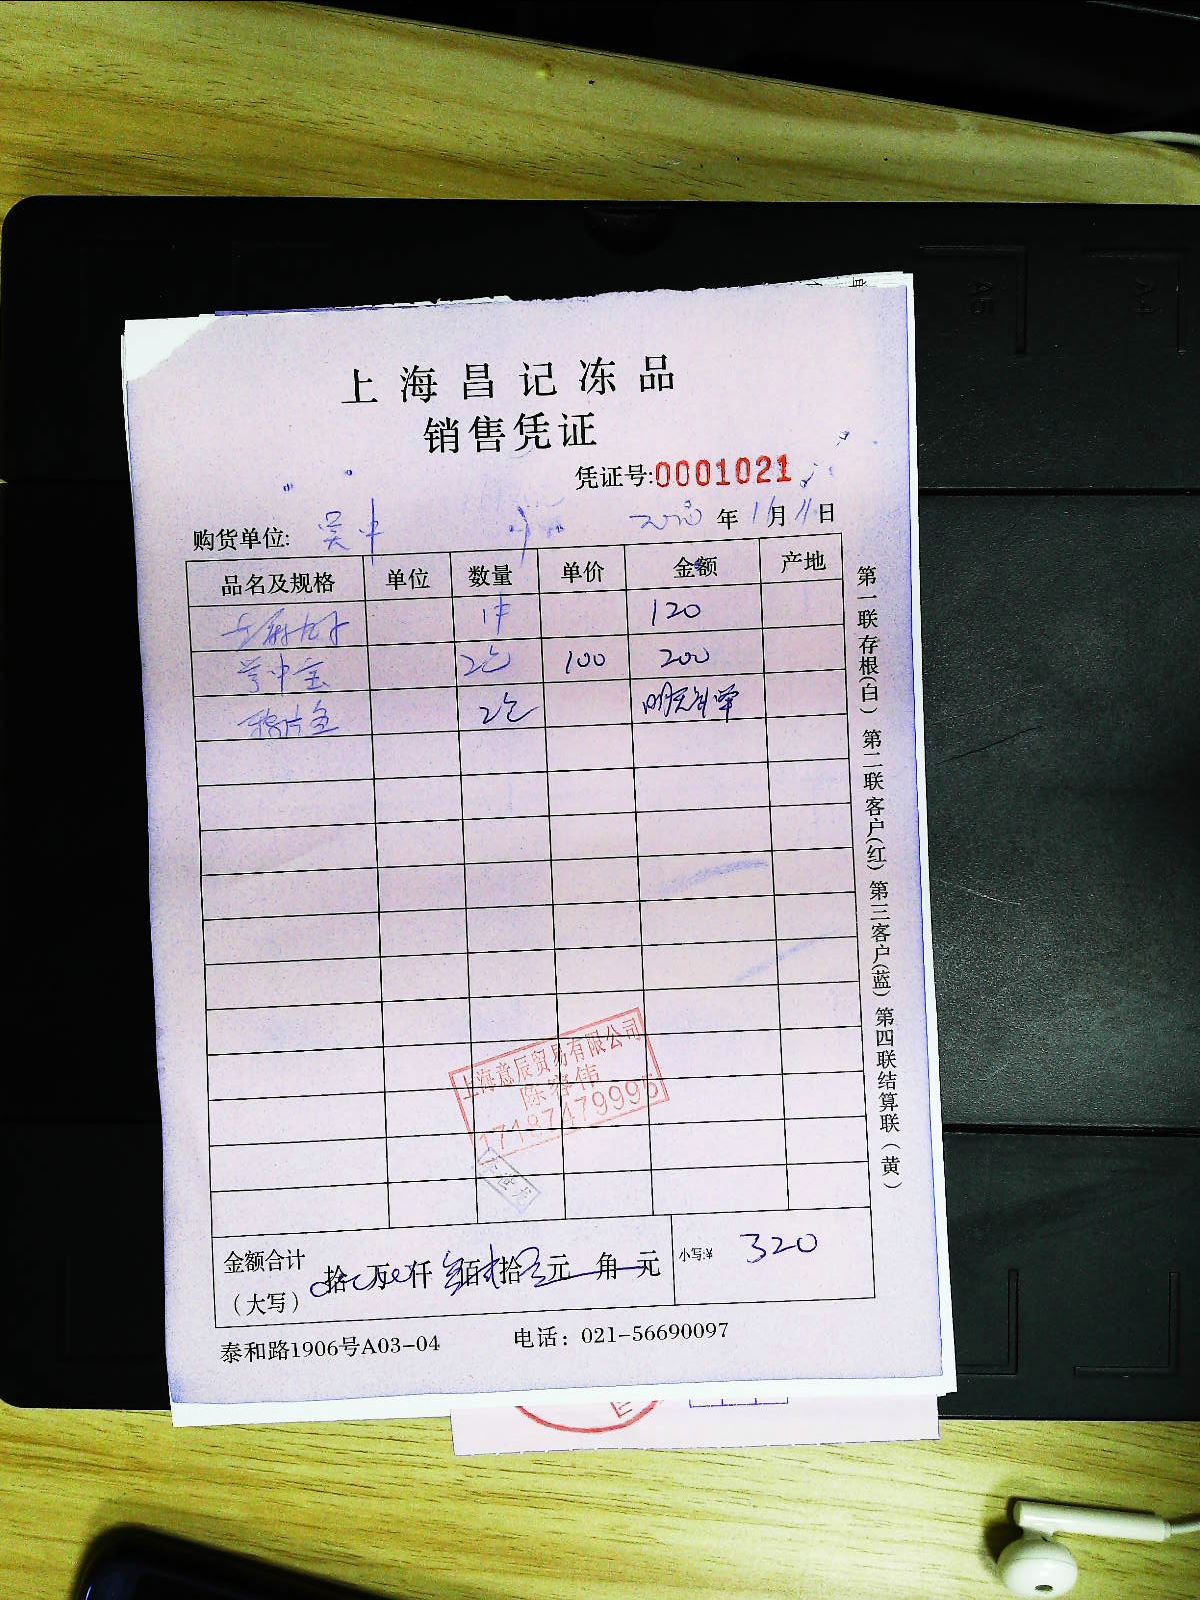 上海昌记冻品
销售凭证
凭证号:0001021
购货单位: 吴中 2020年11月11日
品名及规格 单位 数量 单价 金额 产地
1件 120
2包 100 200
2包 明天开单
上海意辰贸易有限公司
17187479995
金额合计(大写) 拾万仟叁佰贰拾元角元 小写:¥ 320
泰和路1906号A03-04 电话: 021-56690097
第一联存根(白) 第二联客户(红) 第三客户(蓝) 第四联结算联(黄)